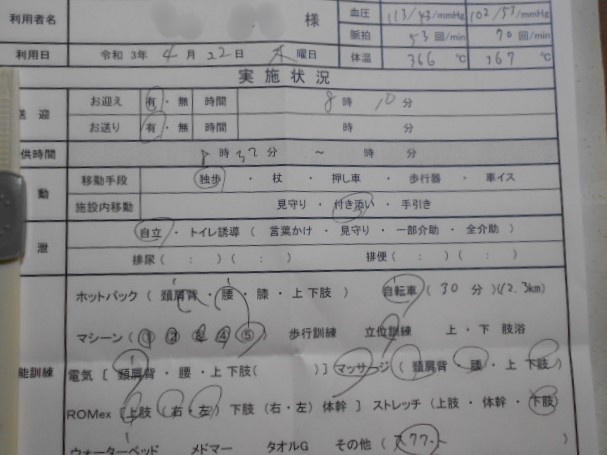 利用者名 様 血圧 113/43/mmHg 102/57/mmHg
脈拍 53 回/min 70 回/min
利用日 令和 3年 4 月 22 日 木 曜日 体温 366 ℃ 367 ℃
実施状況
送迎 お迎え 有・無 時間 8 時 10 分
お送り 有・無 時間 時 分
供時間 時 32 分 ～ 時 分
動 移動手段 独歩 ・ 杖 ・ 押し車 ・ 歩行器 ・ 車イス
施設内移動 見守り ・ 付き添い ・ 手引き
泄 自立 ・ トイレ誘導 ( 言葉かけ ・ 見守り ・ 一部介助 ・ 全介助 )
排尿 ( : ) ( : ) 排便 ( : ) ( : )
ホットパック ( 頸肩背 ・ 腰 ・ 膝 ・ 上 下肢 ) 自転車 ( 30 分 ) (2.3km)
マシーン ( ① ② ③ ④ ⑤ ) 歩行訓練 立位訓練 上 ・ 下 肢浴
能訓練 電気 [ 頸肩背 ・ 腰 ・ 上 下肢( )] マッサージ ( 頸肩背 ・ 腰 ・ 上 下肢 )
ROMex [上肢 (右・左) 下肢 (右・左) 体幹 ] ストレッチ (上肢 ・ 体幹 ・ 下肢)
ウォーターベッド メドマー タオルG その他 (